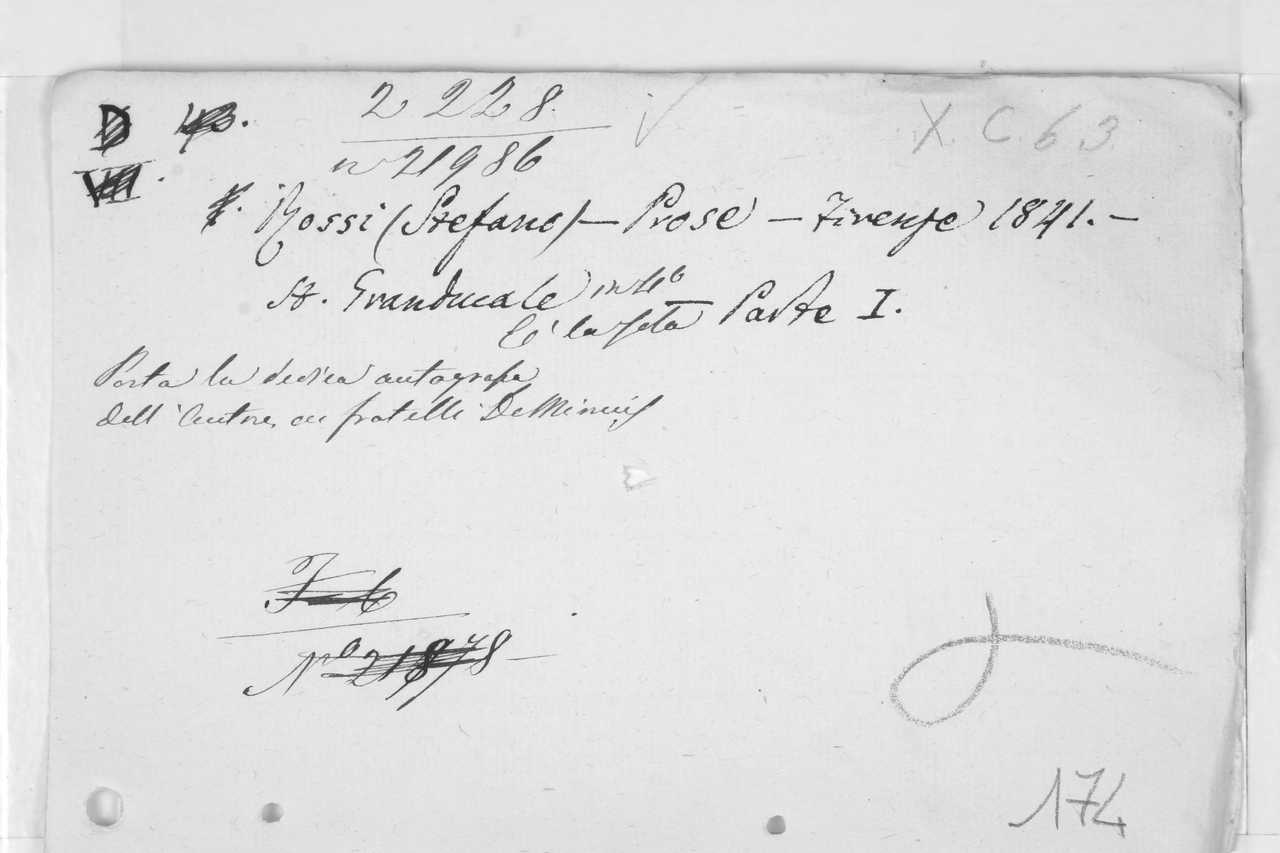 D 43. 2 228 X. C. 63
VII. n 21986
Rossi (Stefano) — Prose — Firenze 1841. —
St. Granducale in 16 — Parte I.
C'è la
Porta la dedica autografa
dell'Autore ai fratelli De Minicis
N° 21878
174